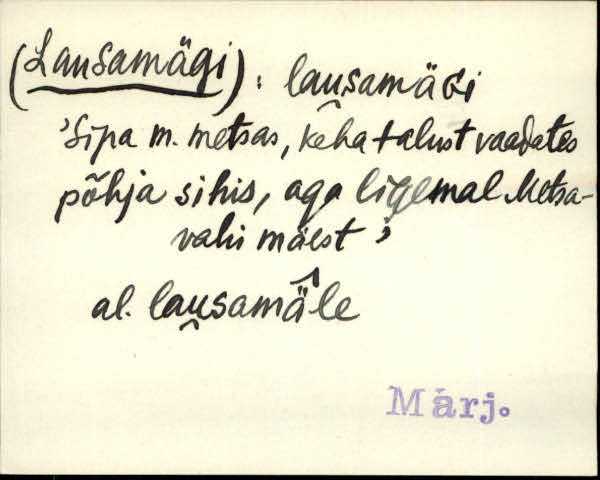 (Lausamägi). lausamäGi
'Sipa m. metsas, Keha talust vaadates
põhja sihis, aga ligemal Metsa-
vahi mäest'
al. lausamäle
Märj.